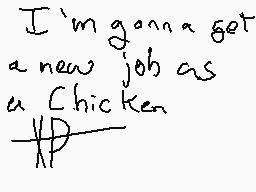 I'm gonna get
a new job as
a Chicken
XP